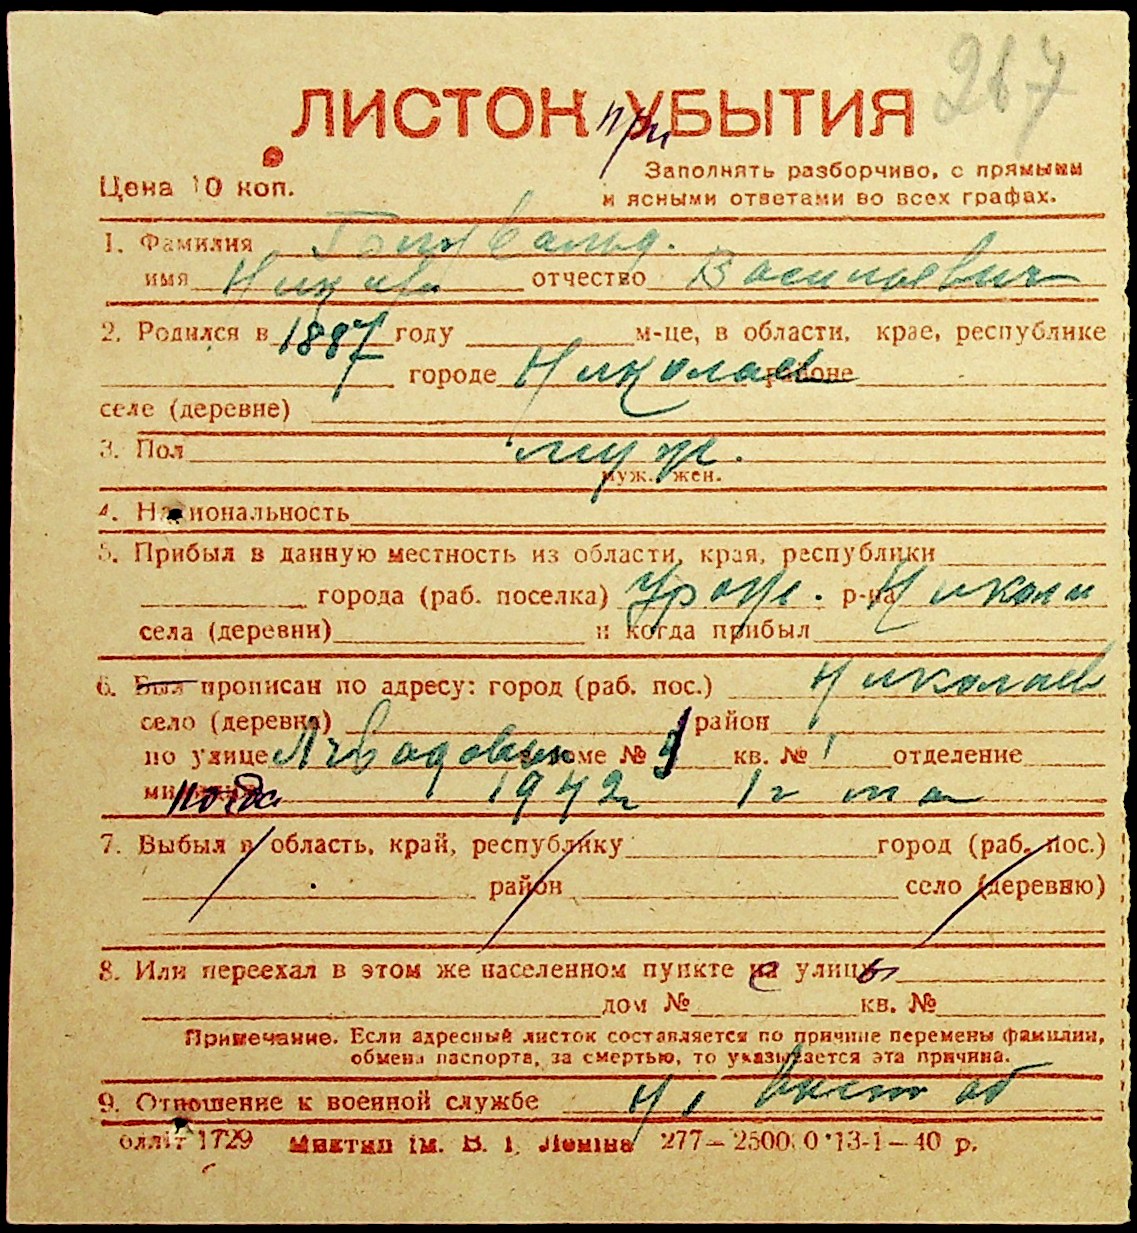 267
ЛИСТОК при УБЫТИЯ
Цена 10 коп.
Заполнять разборчиво, с прямыми
и ясными ответами во всех графах.
1. Фамилия
имя отчество Васильевич
2. Родился в 1887 году м-це, в области, крае, республике
городе Николаев районе
селе (деревне)
3. Пол муж.
муж. жен.
4. Национальность
5. Прибыл в данную местность из области, края, республики
города (раб. поселка) урож. р-на Никола
села (деревни) и когда прибыл
6. Был прописан по адресу: город (раб. пос.) Николаев
село (деревня) район
по улице доме № кв. № 1 отделение
когда 1942 г
7. Выбыл в область, край, республику город (раб. пос.)
район село (деревню)
8. Или переехал в этом же населенном пункте с улицы
дом № кв. №
Примечание. Если адресный листок составляется по причине перемены фамилии,
обмена паспорта, за смертью, то указывается эта причина.
9. Отношение к военной службе
облліт 1729 Миктип ім. В. І. Леніна 277—2500,0 13-1—40 р.